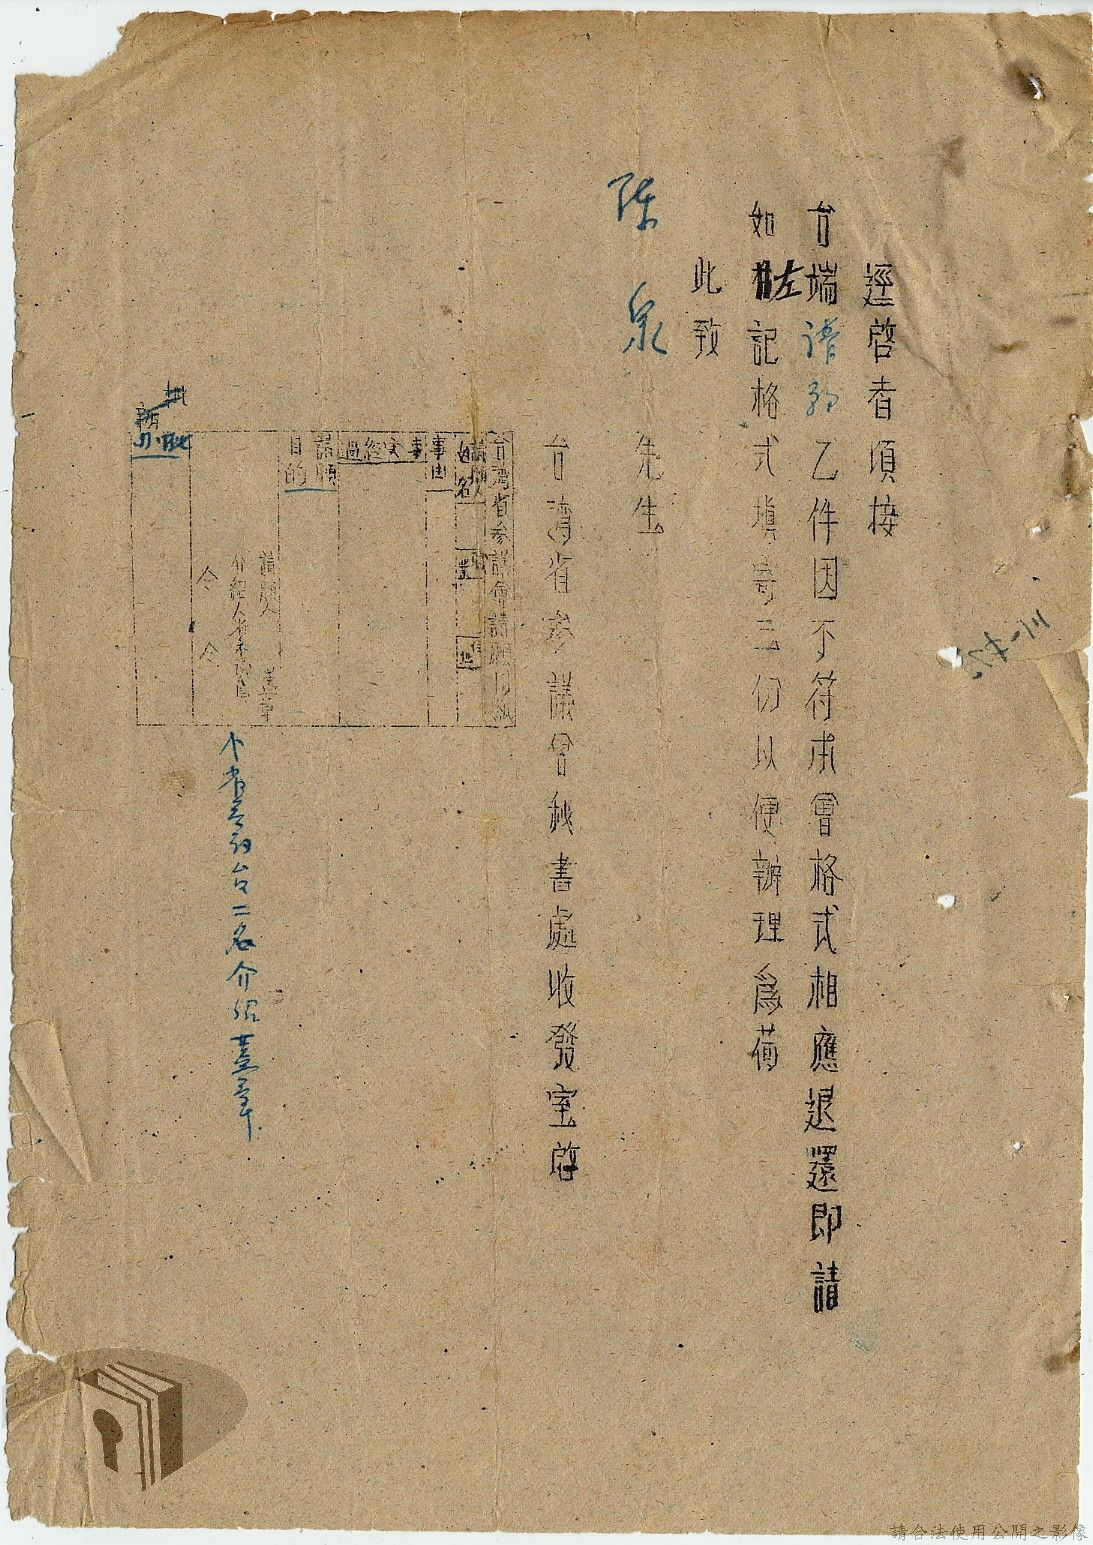 逕啓者頃接
台端請願乙件因不符本會格式相應退還即請
如左記格式填寄三份以便辦理為荷
此致
陳泉先生
台灣省參議會秘書處收發室啓
台灣省參議會請願用紙
請願人姓名
事由
事實經過
請願目的
請願人 蓋章
介紹人省參議員
仝 仝
台二名介紹蓋章
請合法使用公開之影像